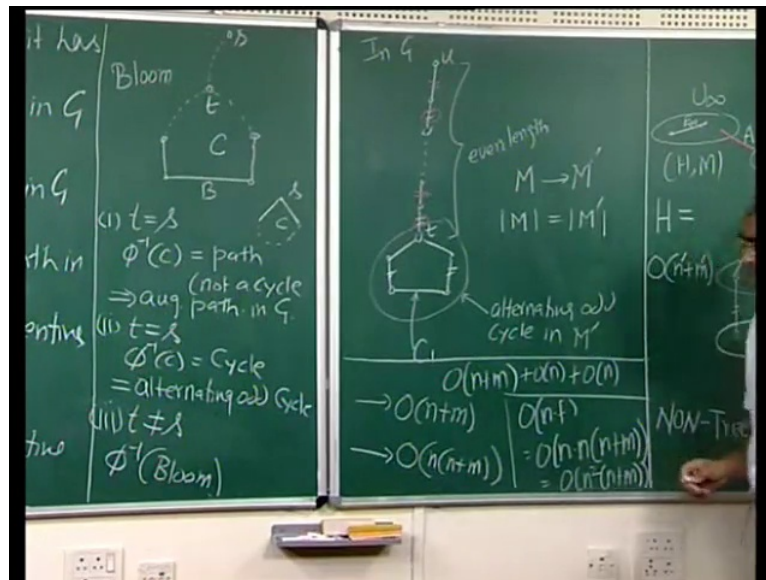 it has
in G
in G
th in
Bloom
s
t
C
B
(i) t=s
s
C
φ⁻¹(C) = path
(not a cycle
⇒ aug. path in G.
(ii) t=s
φ⁻¹(C) = Cycle
= alternating odd Cycle
(iii) t≠s
φ⁻¹(Bloom)
In G
u
even length
M → M'
|M| = |M'|
t
alternating odd
cycle in M'
C₁
O(n+m)+O(n)+O(n)
→ O(n+m)
→ O(n(n+m))
O(n·f)
= O(n·n(n+m))
= O(n²(n+m))
U∞
A
(H, M)
H =
O(n'+m')
NON-TREE